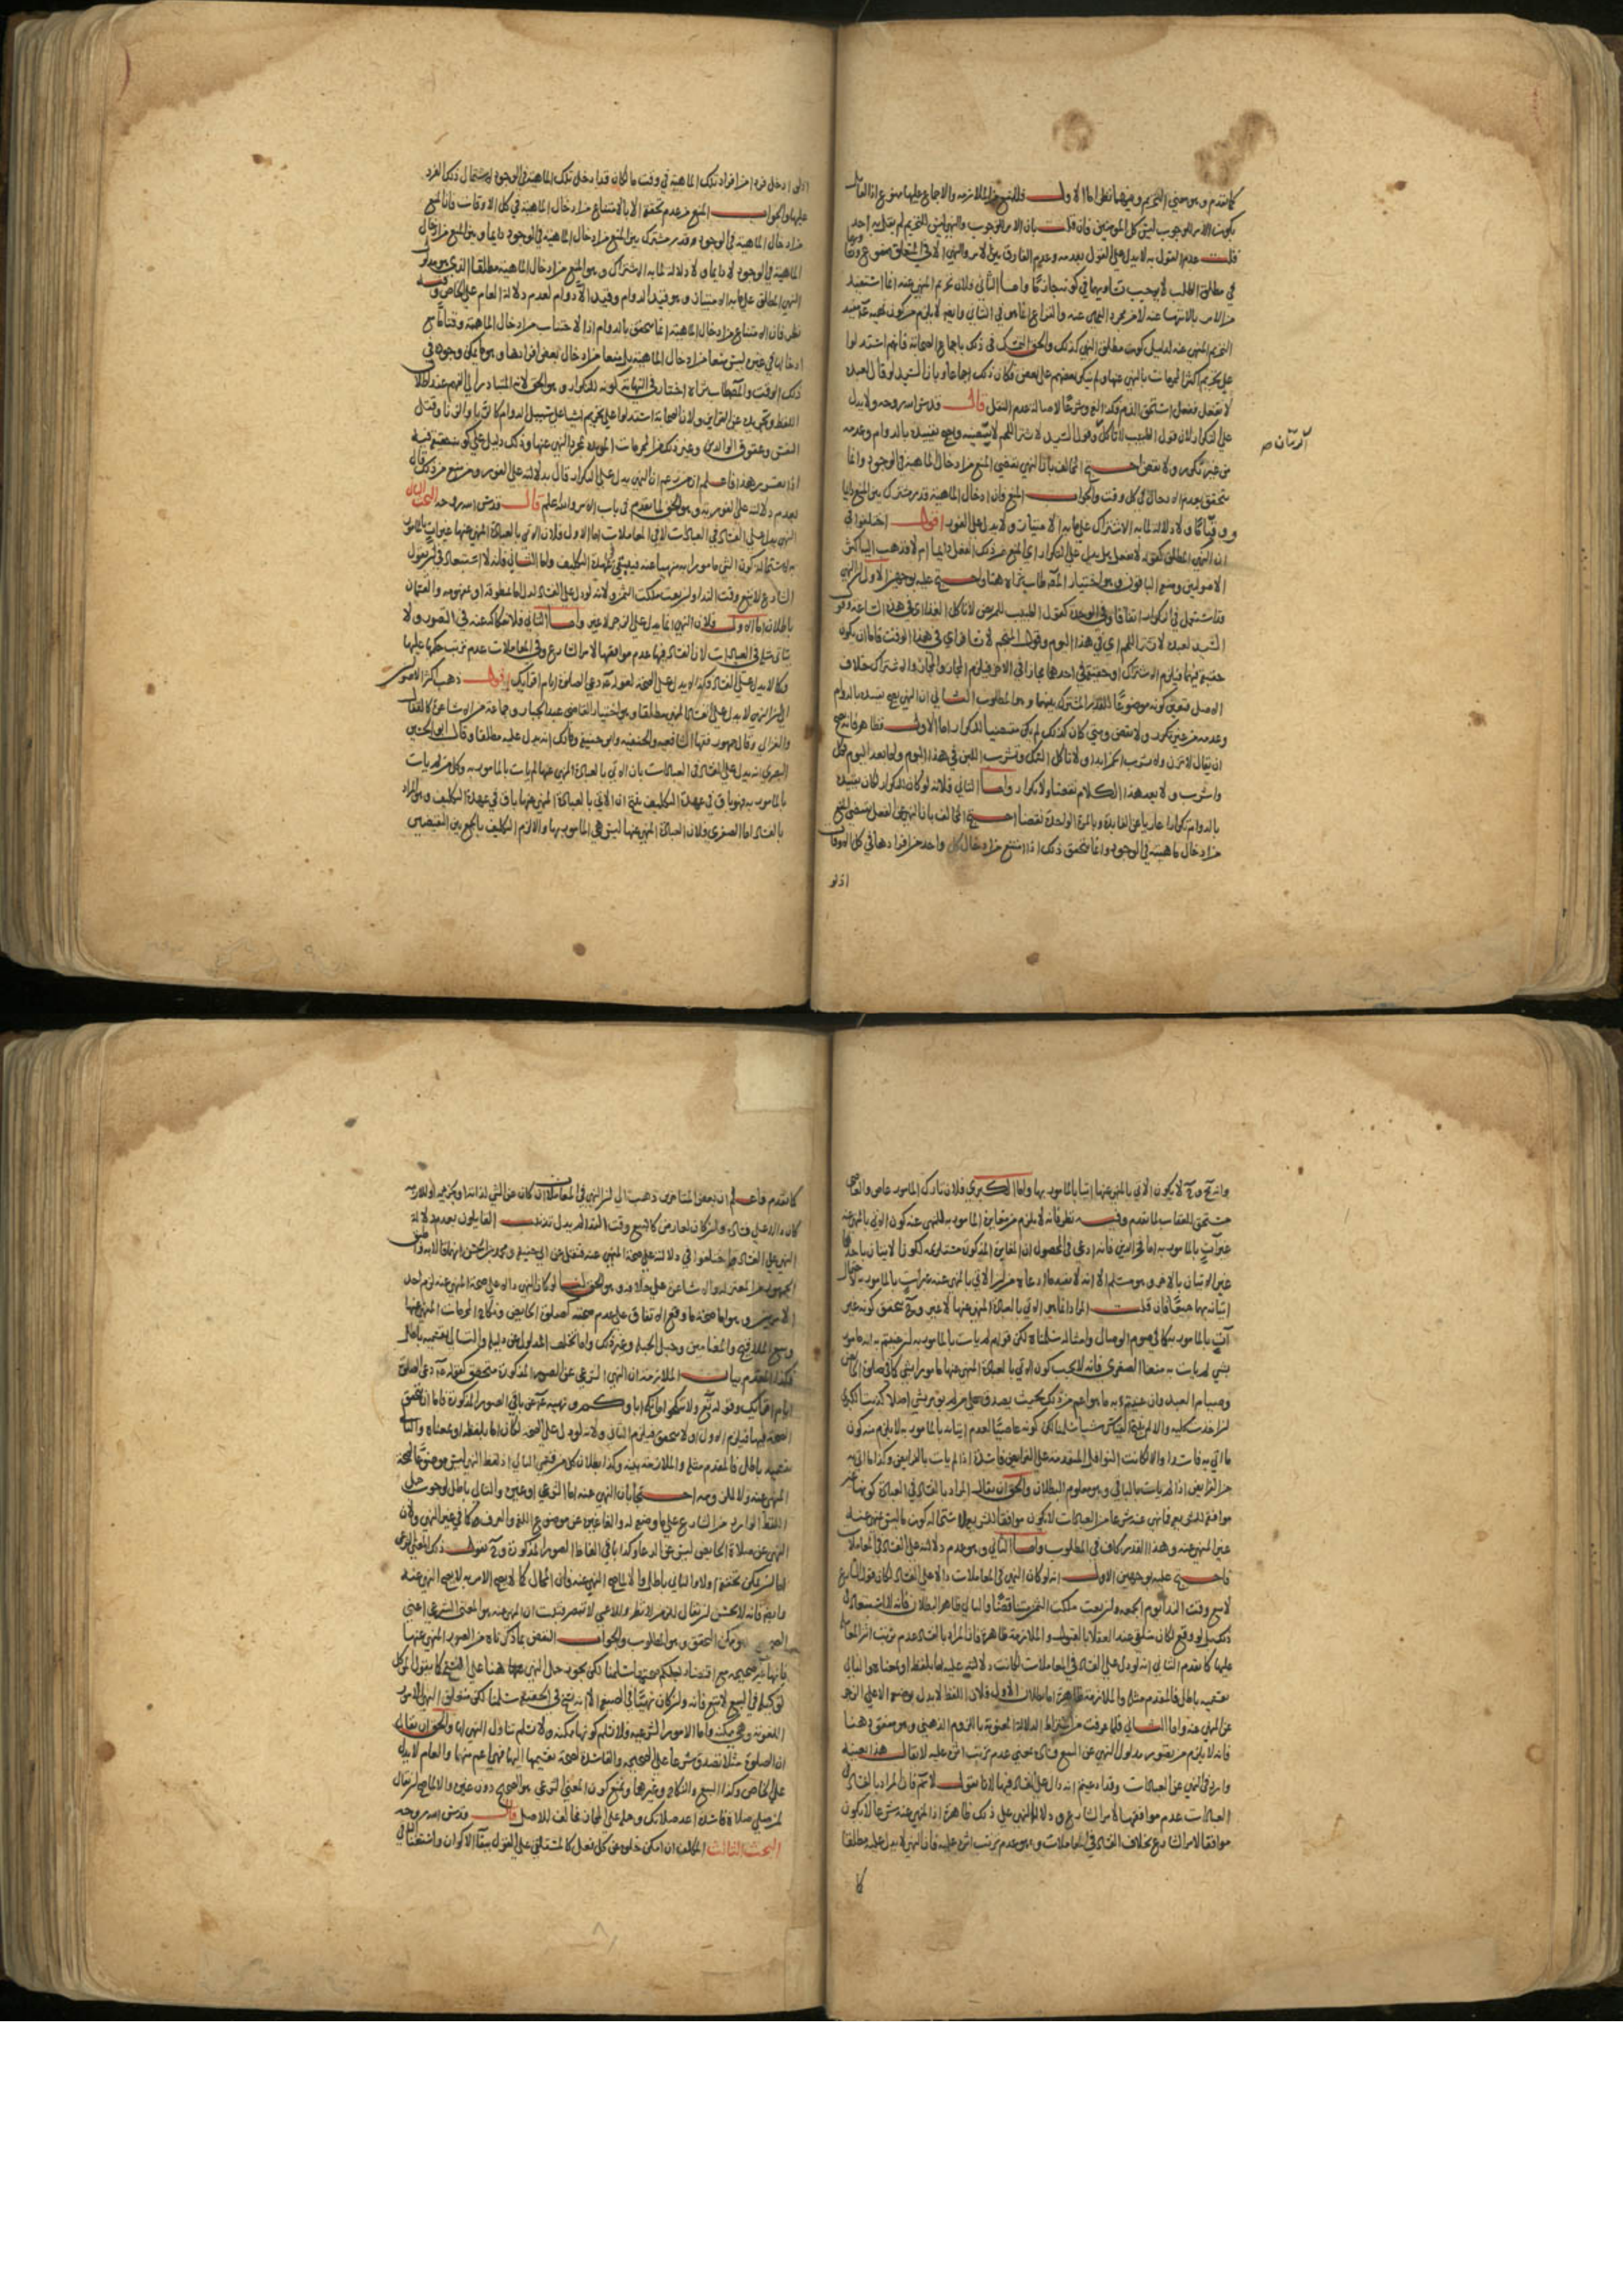 كما تقدم وهو معنى التحريم وفيهما نظر اما الاول فللمنع من الملازمة والاجماع عليها ممنوع اذ القائل
بكون الامر للوجوب ليس كل المؤمنين فان قلت بان الامر للوجوب والنهي ليس للتحريم لم يقل به احد
قلت عدم القول به لا يدل على القول بعدمه وعدم الفارق بين الامر والنهي الا في المتعلق ممنوع
في مطلق الطلب لا يوجب تساويهما في كونه جازما واما الثاني فلان تحريم المنهي عنه انما استفيد
من الامر بالانتهاء عنه لا من مجرد النهي عنه والنزاع انما هو في الثاني وايضا لا يلزم من كون نهيه عم مفيد
التحريم المنهي عنه لدليل كون مطلق النهي كذلك والحق التمسك في ذلك باجماع الصحابة فانهم استدلوا
على تحريم اكثر المحرمات بالنهي عنها ولم ينكر بعضهم على بعض فكان ذلك اجماعا وبان السيد لو قال لعبده
لا تفعل ففعل استحق الذم فكذا لغة وشرعا لاصالة عدم النقل قال قدس الله روحه ولا يدل
على التكرار لان قول الطبيب لا تأكل وقول السيد لا تشتر اللحم لا يقتضيه ويصح تقييده بالدوام وعدمه
من غير تكرير ولا نقض احتج المخالف بان النهي يقتضي المنع من ادخال الماهية في الوجود وانما
يتحقق بعدم الادخال في كل وقت والجواب المنع فان ادخال الماهية قدر مشترك بين المنع دائما
ووقتا ما ولا دلالة لما به الاشتراك على ما به الامتياز ولا يدل على الفور اقول اختلفوا في
ان النهي المطلق كقوله لا تفعل هل يدل على التكرار اي المنع من ذلك الفعل دائما ام لا فذهب اليه اكثر
الاصوليين ومنع الباقون وهو اختيار المص طاب ثراه هنا واحتج عليه بوجهين الاول ان النهي
قد استعمل في التكرار اتفاقا وفي الوحدة كقول الطبيب للمريض لا تأكل الغذا اي في هذه الساعة وقول
السيد لعبده لا تشتر اللحم اي في هذا اليوم وقول المنجم لا تسافر اي في هذا الوقت فاما ان يكون
حقيقة فيهما فيلزم الاشتراك او حقيقة في احدهما مجازا في الاخر فيلزم المجاز والمجاز والاشتراك خلاف
الاصل فتعين كونه موضوعا للقدر المشترك بينهما وهو المطلوب الثاني ان النهي يصح تقييده بالدوام
وعدمه من غير تكرير ولا نقض ومتى كان كذلك لم يكن مقتضيا للتكرار اما الاول فظاهر فانه يصح
ان يقال لا تزن ولا تشرب الخمر ابدا ولا تاكل السمك وتشرب اللبن في هذا اليوم واما بعد اليوم فكل
واشرب ولا يعد هذا الكلام نقضا ولا تكرارا واما الثاني فلانه لو كان للتكرار لكان تقييده
بالدوام تكرارا عاريا عن الفايدة وبالمرة الواحدة نقضا احتج المخالف بان النهي عن الفعل يقتضي المنع
من ادخال ماهيته في الوجود وانما يتحقق ذلك اذا امتنع من ادخال كل واحد من افرادها في كل الاوقات
اذ لو
اذ لو ادخل فردا من افراد تلك الماهية في وقت ما لكان قد ادخل تلك الماهية في الوجود لاشتمال ذلك الفرد
عليها والجواب المنع من عدم تحققه الا بالامتناع من ادخال الماهية في كل الاوقات وان المنع
من ادخال الماهية في الوجود قدر مشترك بين المنع من ادخال الماهية في الوجود دايما وبين المنع من ادخال
الماهية في الوجود لا دايما ولا دلالة لما به الاشتراك وهو المنع من ادخال الماهية مطلقا الذي هو مدلول
النهي المطلق على ما به الامتياز وهو قيد الدوام وقيد اللا دوام لعدم دلالة العام على الخاص وفيه
نظر فان الامتناع من ادخال الماهية انما يتحقق بالدوام اذ الاجتناب من ادخال الماهية وقتا ما مع
ادخالها في غيره ليس منعا من ادخال الماهية بل منعا من ادخال بعض افرادها وهو ما يمكن وجوده في
ذلك الوقت والمص طاب ثراه اختار في النهاية كونه للتكرار وهو الحق لانه المتبادر الى الفهم عند اطلاق
اللفظ وتجريده عن القراين ولان الصحابة استدلوا على تحريم اشيا على سبيل الدوام كالربا والزنا وقتل
النفس وعقوق الوالدين وغير ذلك من المحرمات المؤبدة بمجرد النهي عنها وذلك دليل على كونه حقيقة فيه
اذا تقرر هذا فاعلم ان من زعم ان النهي يدل على التكرار قال بدلالته على الفور ومن منع من ذلك قال
بعدم دلالته على الفورية وهو الحق لما تقدم في باب الامر والله اعلم قال قدس الله روحه البحث الثاني
النهي يدل على الفساد في العبادات لا في المعاملات اما الاول فلان الاتي بالعبادة المنهي عنها غير آت بالمأمور
به لاستحالة كون الشي مأمورا به منهيا عنه فيبقى في عهدة التكليف واما الثاني فانه لا استبعاد في ان يقول
الشارع لا تبع وقت النداء ولو بعت ملكت الثمن ولانه لو دل على الفساد لدل اما بمنطوقه او بمفهومه والقسمان
باطلان اما الاول فلان النهي انما يدل على الزجر لا غير واما الثاني فلانفكاكه عنه في التصور ولا
يتأتى مثله في العبادات لان الفساد فيها عدم موافقتها لامر الشارع وفي المعاملات عدم ترتب حكمها عليها
وكما لا يدل على الفساد فكذا لا يدل على الصحة لقوله عم دعي الصلوة ايام اقرائك اقول ذهب اكثر الاصوليين
الى ان النهي لا يدل على الفساد المنهي مطلقا وهو اختيار القاضي عبد الجبار وجماعة من الاشاعرة كالقفال
والغزالي وقال جمهور فقها الشافعية والحنفية وابو حنيفة ومالك انه يدل عليه مطلقا وقال ابو الحسين
البصري انه يدل على الفساد في العبادات بان الاتي بالعبادة المنهي عنها لم يات بالمامور به وكل من لم يات
بالمامور به فهو باق في عهدة التكليف ينتج ان الاتي بالعبادة المنهي عنها باق في عهدة التكليف وهو المراد
بالفساد اما الصغرى فلان العبادة المنهي عنها ليس هي المامور بها والا لزم التكليف بالجمع بين النقيضين
وانه مح وح لا يكون الاتي بالمنهي عنها اتيا بالمامور بها واما الكبرى فلان تارك المامور به عاص والعاصي
مستحق العقاب لما تقدم وفيه نظر فانه لا يلزم من مغايرة المامور به للمنهي عنه كون الاتي بالمنهي عنه
غير آت بالمامور به
غير الاتيان بالاخر وهو مسلم الا انه لا يفيد ما ادعاه من ان الاتي بالمنهي عنه غير آت بالمامور به لاحتمال
اتيانه بهما جميعا فان قلت المراد انما هو الاتي بالعبادة المنهي عنها لا غير وح يتحقق كونه غير
آت بالمامور به كما في صوم الوصال وامثاله سلمناه لكن قولهم لم يات بالمامور به
بشي لم يات به منعنا الصغرى فانه لا يجب كون الاتي بالعبادة المنهي عنها مامورا بشي كما في صلوة الحايض
وصيام العبد وان عنيتم به ما هو اعم من ذلك بحيث يصدق على من لم يؤمر بشي اصلا كذبت الكبرى
ان اخذت كلية والا لم ينتج القياس شيا سلمنا لكن كونه عاصيا لعدم اتيانه بالمامور به لا يلزم منه كون
ما اتى به فاسدا والا لكانت النوافل المتقدمة على الفرايض فاسدة اذا لم يات بالفرايض وكذا ما اتى به
من الفرايض اذا لم يات بالباقي وهو معلوم البطلان والحق ان يقال المراد بالفساد في العبادة كونها غير
موافقة للشريعة فما نهي عنه شرعا من العبادات لا يكون موافقا للشريعة لاستحالة كون ما ليس منهي عنه
عين المنهي عنه وهذا القدر كاف في المطلوب واما الثاني وهو عدم دلالته على الفساد في المعاملات
فاحتج عليه بوجهين الاول انه لو كان النهي في المعاملات دالا على الفساد لكان قول الشارع
لا تبع وقت الندا يوم الجمعة ولو بعت ملكت الثمن متناقضا والتالي ظاهر البطلان فانه لا استبعاد في
ذلك بل لو وقع لكان متلقى عند العقلا بالقبول والملازمة ظاهرة فان المراد بالفساد عدم ترتب اثر المعاملة
عليها كما تقدم الثاني انه لو دل على الفساد في المعاملات لكانت دلالته عليه اما بلفظه او بمعناه والتالي
بقسميه باطل فالمقدم مثله والملازمة ظاهرة اما بطلان الاول فلان اللفظ لا يدل بوضعه الا على الزجر
عن المنهي عنه واما الثاني فلما عرفت من اشتراط الدلالة المعنوية باللزوم الذهني وهو مفقود هنا
فانه لا يلزم من تصور مدلول النهي عن البيع فساده بمعنى عدم ترتب اثره عليه لا يقال هذا بعينه
وارد في النهي عن العبادات وقد ادعيتم انه دال على الفساد فيها لانا نقول لا نسلم فان المراد بالفساد في
العبادات عدم موافقتها لامر الشارع ودلالة النهي على ذلك ظاهرة اذ المنهي عنه شرعا لا يكون
موافقا لامر الشارع بخلاف الفساد في المعاملات وهو عدم ترتب اثره عليه فان النهي لا يدل عليه مطلقا
كما
كما تقدم واعلم ان بعض المتاخرين ذهب الى ان النهي في المعاملات ان كان عن الشي لذاته او لجزئيه او للازمه
كان دالا على فساده وان كان لعارض كالبيع وقت النداء لم يدل تذنيب القايلون بعدم دلالة
النهي على الفساد اختلفوا في دلالته على صحة المنهي عنه فنقل عن ابي حنيفة ومحمد بن الحسن
الجمهور من المعتزلة والاشاعرة على خلافه وهو الحق لنا لو كان النهي دالا على صحة المنهي عنه لزم احد
الامرين وهو اما صحة ما وقع الاتفاق على عدم صحته كصلوة الحايض ونكاح المحرمات المنهي عنها
وبيع الملاقيح والمضامين وحبل الحبلة وغير ذلك واما تخلف المدلول عن دليله والتالي بقسميه باطل
فكذا المقدم بيان الملازمة ان النهي الشرعي عن الصور المذكورة متحقق كقوله عم دعي الصلوة
ايام اقرائك وقوله تع ولا تنكحوا ما نكح اباؤكم ونهيه عم عن باقي الصور المذكورة فاما ان تتحقق
الصحة فيها فيلزم الاول او لا يتحقق فيلزم الثاني ولانه لو دل على الصحة لكان اما بلفظه او بمعناه والتالي
بقسميه باطل فالمقدم مثله والملازمة بينة وكذا بطلان كل من قسمي التالي اذ لفظ النهي ليس موضوعا لصحة
المنهي عنه ولا ملزومه احتجا بان النهي عنه اما الشرعي او غيره والتالي باطل لوجوب حمل
اللفظ الوارد من الشارع على ما وضع له
النهي عن صلاة الحايض ليس عن الدعا وكذا باقي الفاظ الصور المذكورة وح نقول ذلك المعنى الشرعي
اما ان يمكن تحققه او لا والثاني باطل والا لما صح النهي عنه فان المحال كما لا يصح الامر به لا يصح النهي عنه
وايضا فانه لا يحسن ان يقال للزمن لا تطر وللاعمى لا تبصر فثبت ان المنهي عنه هو المعنى الشرعي
ممكن التحقق وهو المطلوب والجواب النقض بما ذكرناه من الصور المنهي عنها
فانها غير صحيحة مع اقتضاء دليلكم صحتها سلمنا لكن يجوز حمل النهي هنا على النسخ كما يقول الموكل
لوكيله في البيع لا تبع فانه وان كان نهيا في الصيغة الا انه نسخ في الحقيقة سلمنا لكن متعلق النهي الامور
اللغوية وهي ممكنة واما الامور الشرعية فلا نسلم كونها ممكنة ولا نسلم تناول النهي لها والحق ان يقال
ان الصلوة مثلا تصدق شرعا على الصحيحة والفاسدة لصحة تقسيمها اليهما فهي اعم منهما والعام لا يدل
على الخاص وكذا البيع والنكاح وغيرها ونمنع كون المعنى الشرعي هو الصحيح دون غيره والا لما صح ان يقال
لمن صلى صلاة فاسدة اعد صلاتك وحمله على المجاز مخالف للاصل قال قدس الله روحه
البحث الثالث المكلف ان امكن خلوه عن كل فعل كالمستلقي على القول ببقاء الاكوان واستغناء الباقي